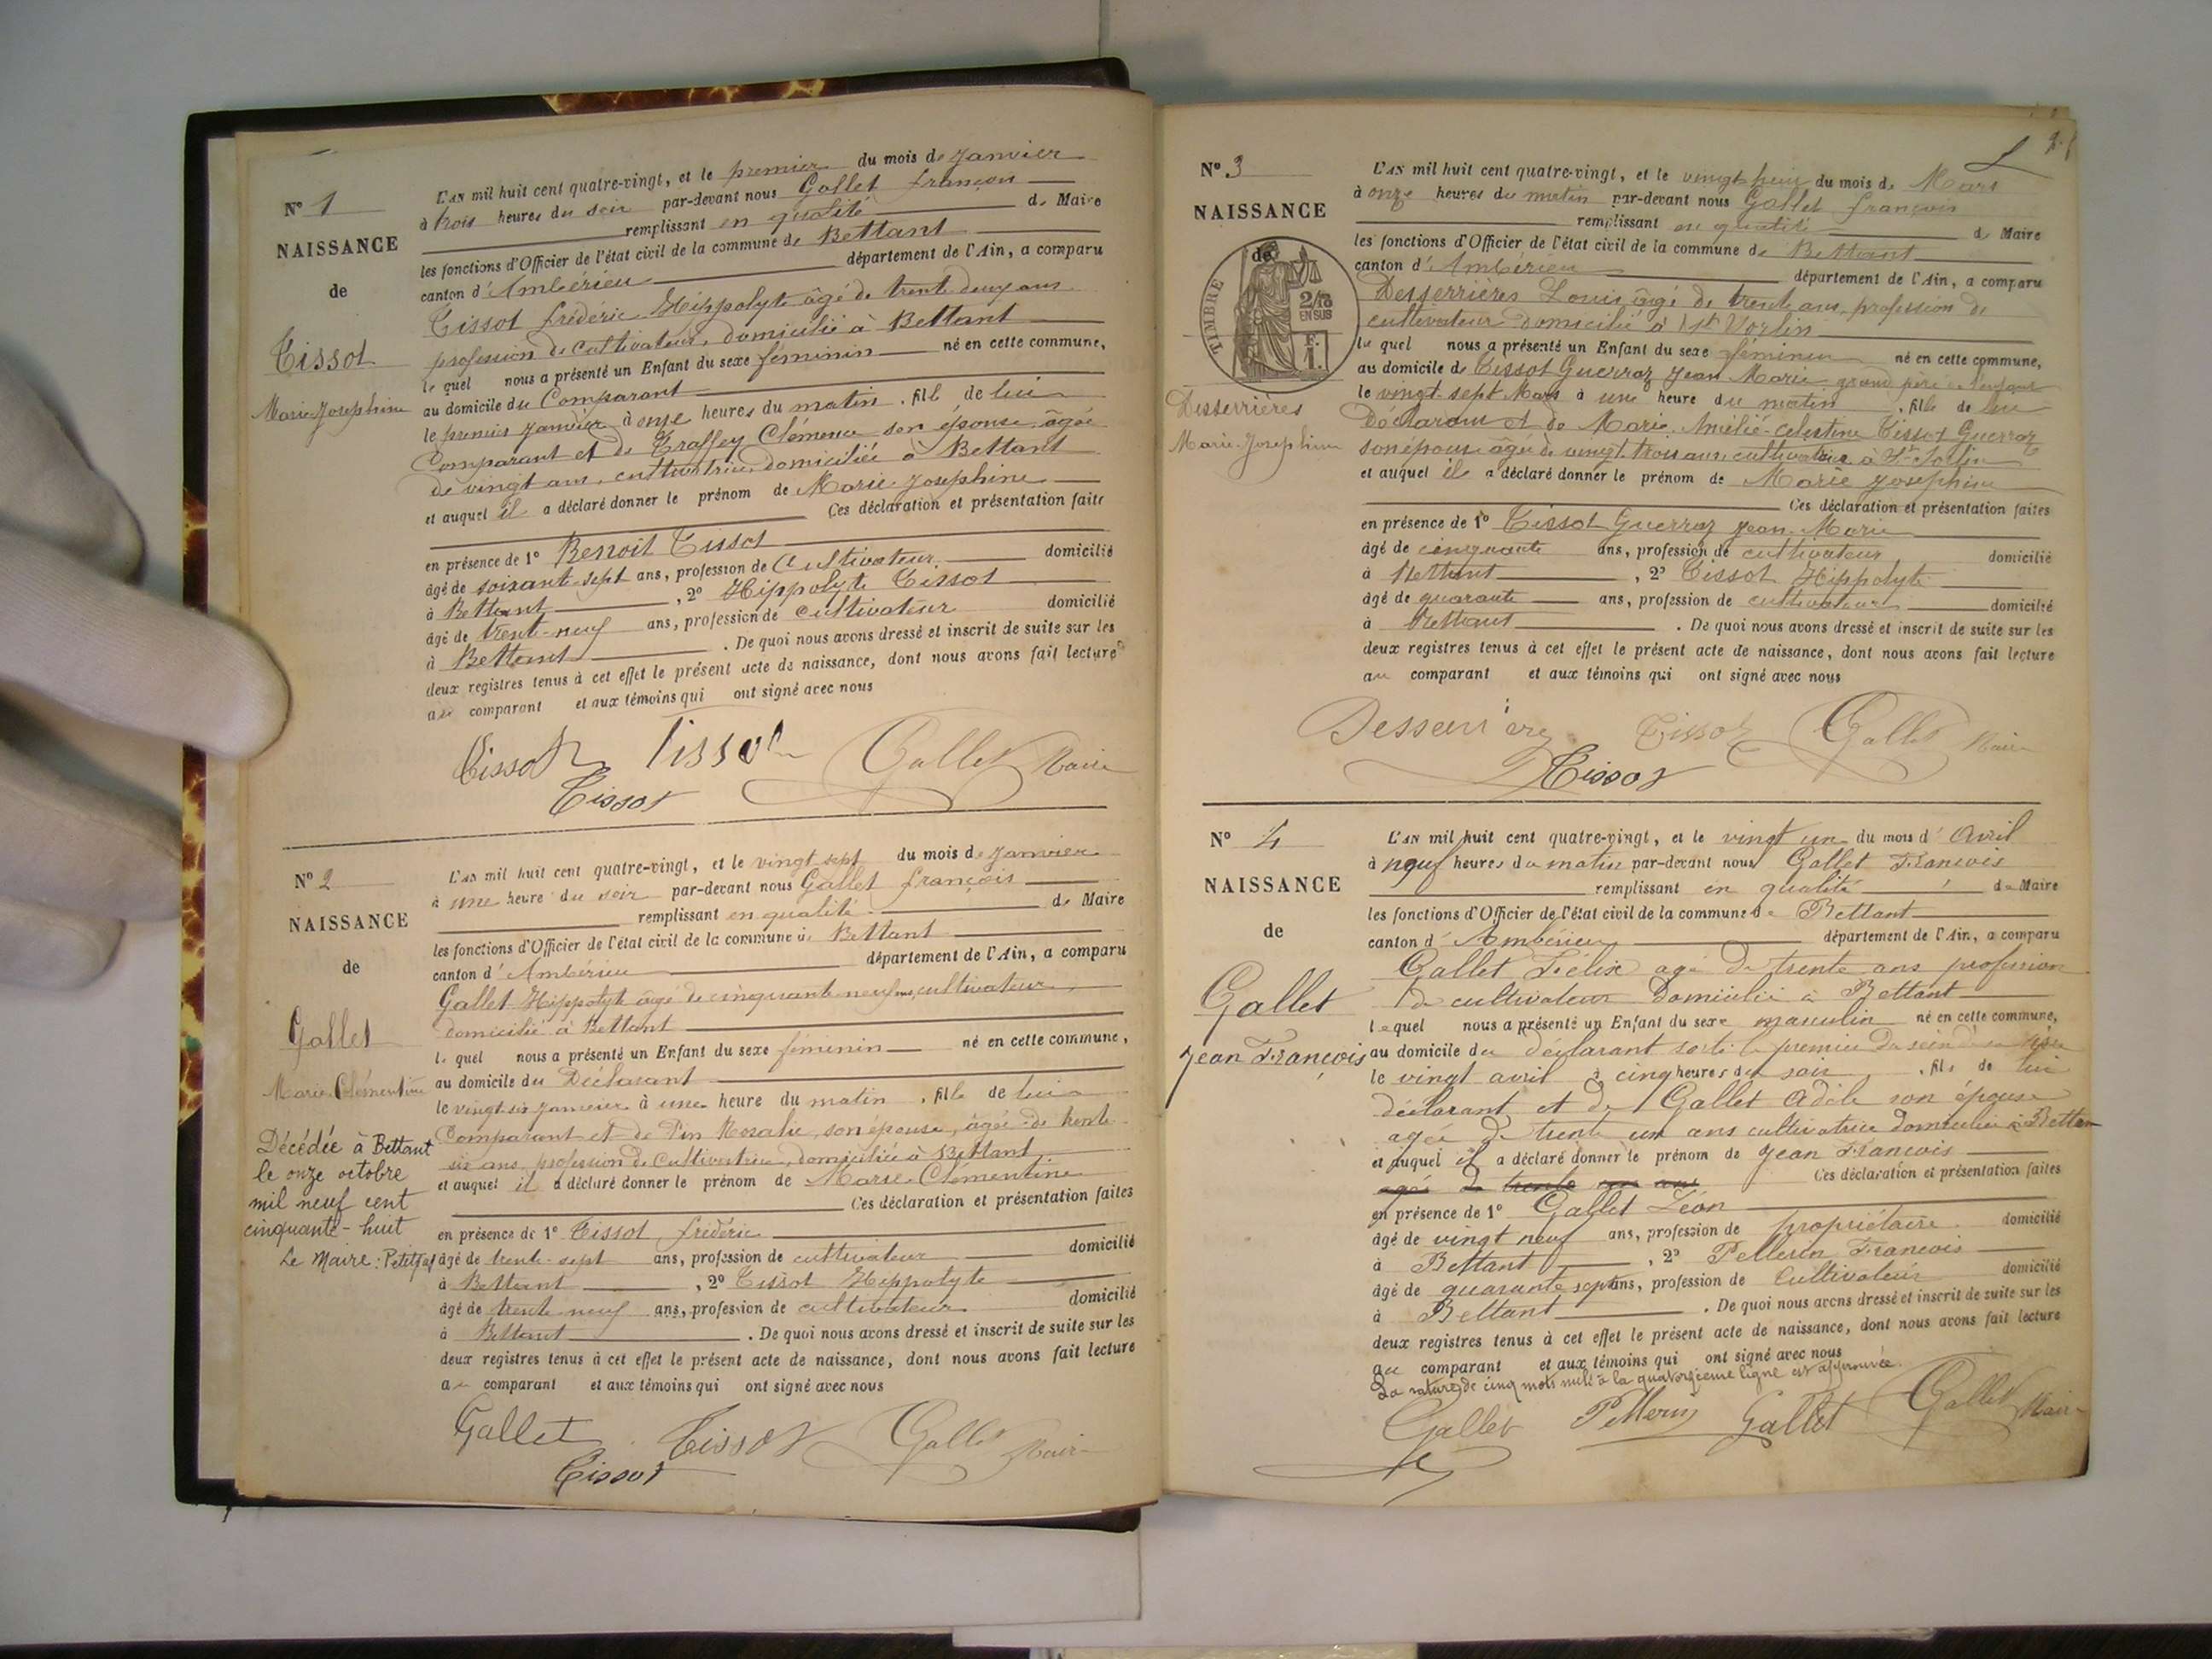 N° 1
NAISSANCE
de
Tissot
Marie Joséphine
L'an mil huit cent quatre-vingt, et le premier du mois de Janvier
à trois heures du soir par-devant nous Gallet françois
remplissant en qualité de Maire
les fonctions d'Officier de l'état civil de la commune de Bettant
canton d'Ambérieu département de l'Ain, a comparu
Tissot frédéric Hippolyte âgé de trente deux ans
profession de Cultivateur, domicilié à Bettant
le quel nous a présenté un Enfant du sexe féminin né en cette commune,
au domicile du Comparant
le premier janvier à onze heures du matin, fille de lui
Comparant et de Traffey Clémence son épouse âgée
de vingt ans, cultivatrice domiciliée à Bettant
et auquel il a déclaré donner le prénom de Marie Joséphine
Ces déclaration et présentation faites
en présence de 1° Benoit Tissot
âgé de soixante-sept ans, profession de Cultivateur domicilié
à Bettant, 2° Hippolyte Tissot
âgé de trente-neuf ans, profession de cultivateur domicilié
à Bettant. De quoi nous avons dressé et inscrit de suite sur les
deux registres tenus à cet effet le présent acte de naissance, dont nous avons fait lecture
au comparant et aux témoins qui ont signé avec nous
Tissot Tissot Gallet Maire
Tissot
N° 2
NAISSANCE
de
Gallet
Marie Clémentine
Décédée à Bettant
le onze octobre
mil neuf cent
cinquante-huit
Le Maire :
L'an mil huit cent quatre-vingt, et le vingt sept du mois de Janvier
à une heure du soir par-devant nous Gallet françois
remplissant en qualité de Maire
les fonctions d'Officier de l'état civil de la commune de Bettant
canton d'Ambérieu département de l'Ain, a comparu
Gallet Hippolyte âgé de cinquante neuf ans, cultivateur
domicilié à Bettant
le quel nous a présenté un Enfant du sexe féminin né en cette commune,
au domicile du Déclarant
le vingt-six janvier à une heure du matin, fille de lui
Comparant et de Pin Rosalie, son épouse, âgée de trente
six ans, profession de Cultivatrice, domiciliée à Bettant
et auquel il a déclaré donner le prénom de Marie Clémentine
Ces déclaration et présentation faites
en présence de 1° Tissot frédéric
âgé de trente-sept ans, profession de cultivateur domicilié
à Bettant, 2° Tissot Hippolyte
âgé de trente neuf ans, profession de cultivateur domicilié
à Bettant. De quoi nous avons dressé et inscrit de suite sur les
deux registres tenus à cet effet le présent acte de naissance, dont nous avons fait lecture
au comparant et aux témoins qui ont signé avec nous
Gallet Tissot Gallet Maire
Tissot
N° 3
NAISSANCE
de
TIMBRE
2/10
EN SUS
F.
1.
Desserrières
Marie-Joséphine
L'an mil huit cent quatre-vingt, et le vingt huit du mois de Mars
à onze heures du matin par-devant nous Gallet françois
remplissant en qualité de Maire
les fonctions d'Officier de l'état civil de la commune de Bettant
canton d'Ambérieu département de l'Ain, a comparu
Desserrières Louis, âgé de trente ans, profession de
cultivateur domicilié à St Sorlin
le quel nous a présenté un Enfant du sexe féminin né en cette commune,
au domicile de Tissot Guerraz Jean Marie grand père de l'enfant
le vingt-sept Mars à une heure du matin, fille de lui
Déclarant et de Marie Amélie-Celestine Tissot Guerraz
son épouse âgée de vingt-trois ans, cultivatrice à St Sorlin
et auquel il a déclaré donner le prénom de Marie Joséphine
Ces déclaration et présentation faites
en présence de 1° Tissot Guerraz Jean-Marie
âgé de cinquante ans, profession de cultivateur domicilié
à Bettant, 2° Tissot Hippolyte
âgé de quarante ans, profession de cultivateur domicilié
à Bettant. De quoi nous avons dressé et inscrit de suite sur les
deux registres tenus à cet effet le présent acte de naissance, dont nous avons fait lecture
au comparant et aux témoins qui ont signé avec nous
Tissot Gallet Maire
Tissot
N° 4
NAISSANCE
de
Gallet
Jean François
L'an mil huit cent quatre-vingt, et le vingt un du mois d'Avril
à neuf heures du matin par-devant nous Gallet François
remplissant en qualité de Maire
les fonctions d'Officier de l'état civil de la commune de Bettant
canton d'Ambérieu département de l'Ain, a comparu
Gallet Félix agé de trente ans profession
de cultivateur domicilié à Bettant
lequel nous a présenté un Enfant du sexe masculin né en cette commune,
au domicile du déclarant sorti le premier du sein de sa mère
le vingt avril à cinq heures du soir, fils de lui
déclarant et de Gallet Adèle son épouse
agée de trente un ans cultivatrice domiciliée à Bettan
et auquel il a déclaré donner le prénom de Jean François
agée de trente un ans Ces déclaration et présentation faites
en présence de 1° Gallet Léon
âgé de vingt neuf ans, profession de propriétaire domicilié
à Bettant, 2° Pellerin François
âgé de quarante sept ans, profession de Cultivateur domicilié
à Bettant. De quoi nous avons dressé et inscrit de suite sur les
deux registres tenus à cet effet le présent acte de naissance, dont nous avons fait lecture
au comparant et aux témoins qui ont signé avec nous
La rature de cinq mots nuls à la quatorzième ligne est approuvée.
Gallet Pellerin Gallet Gallet Maire